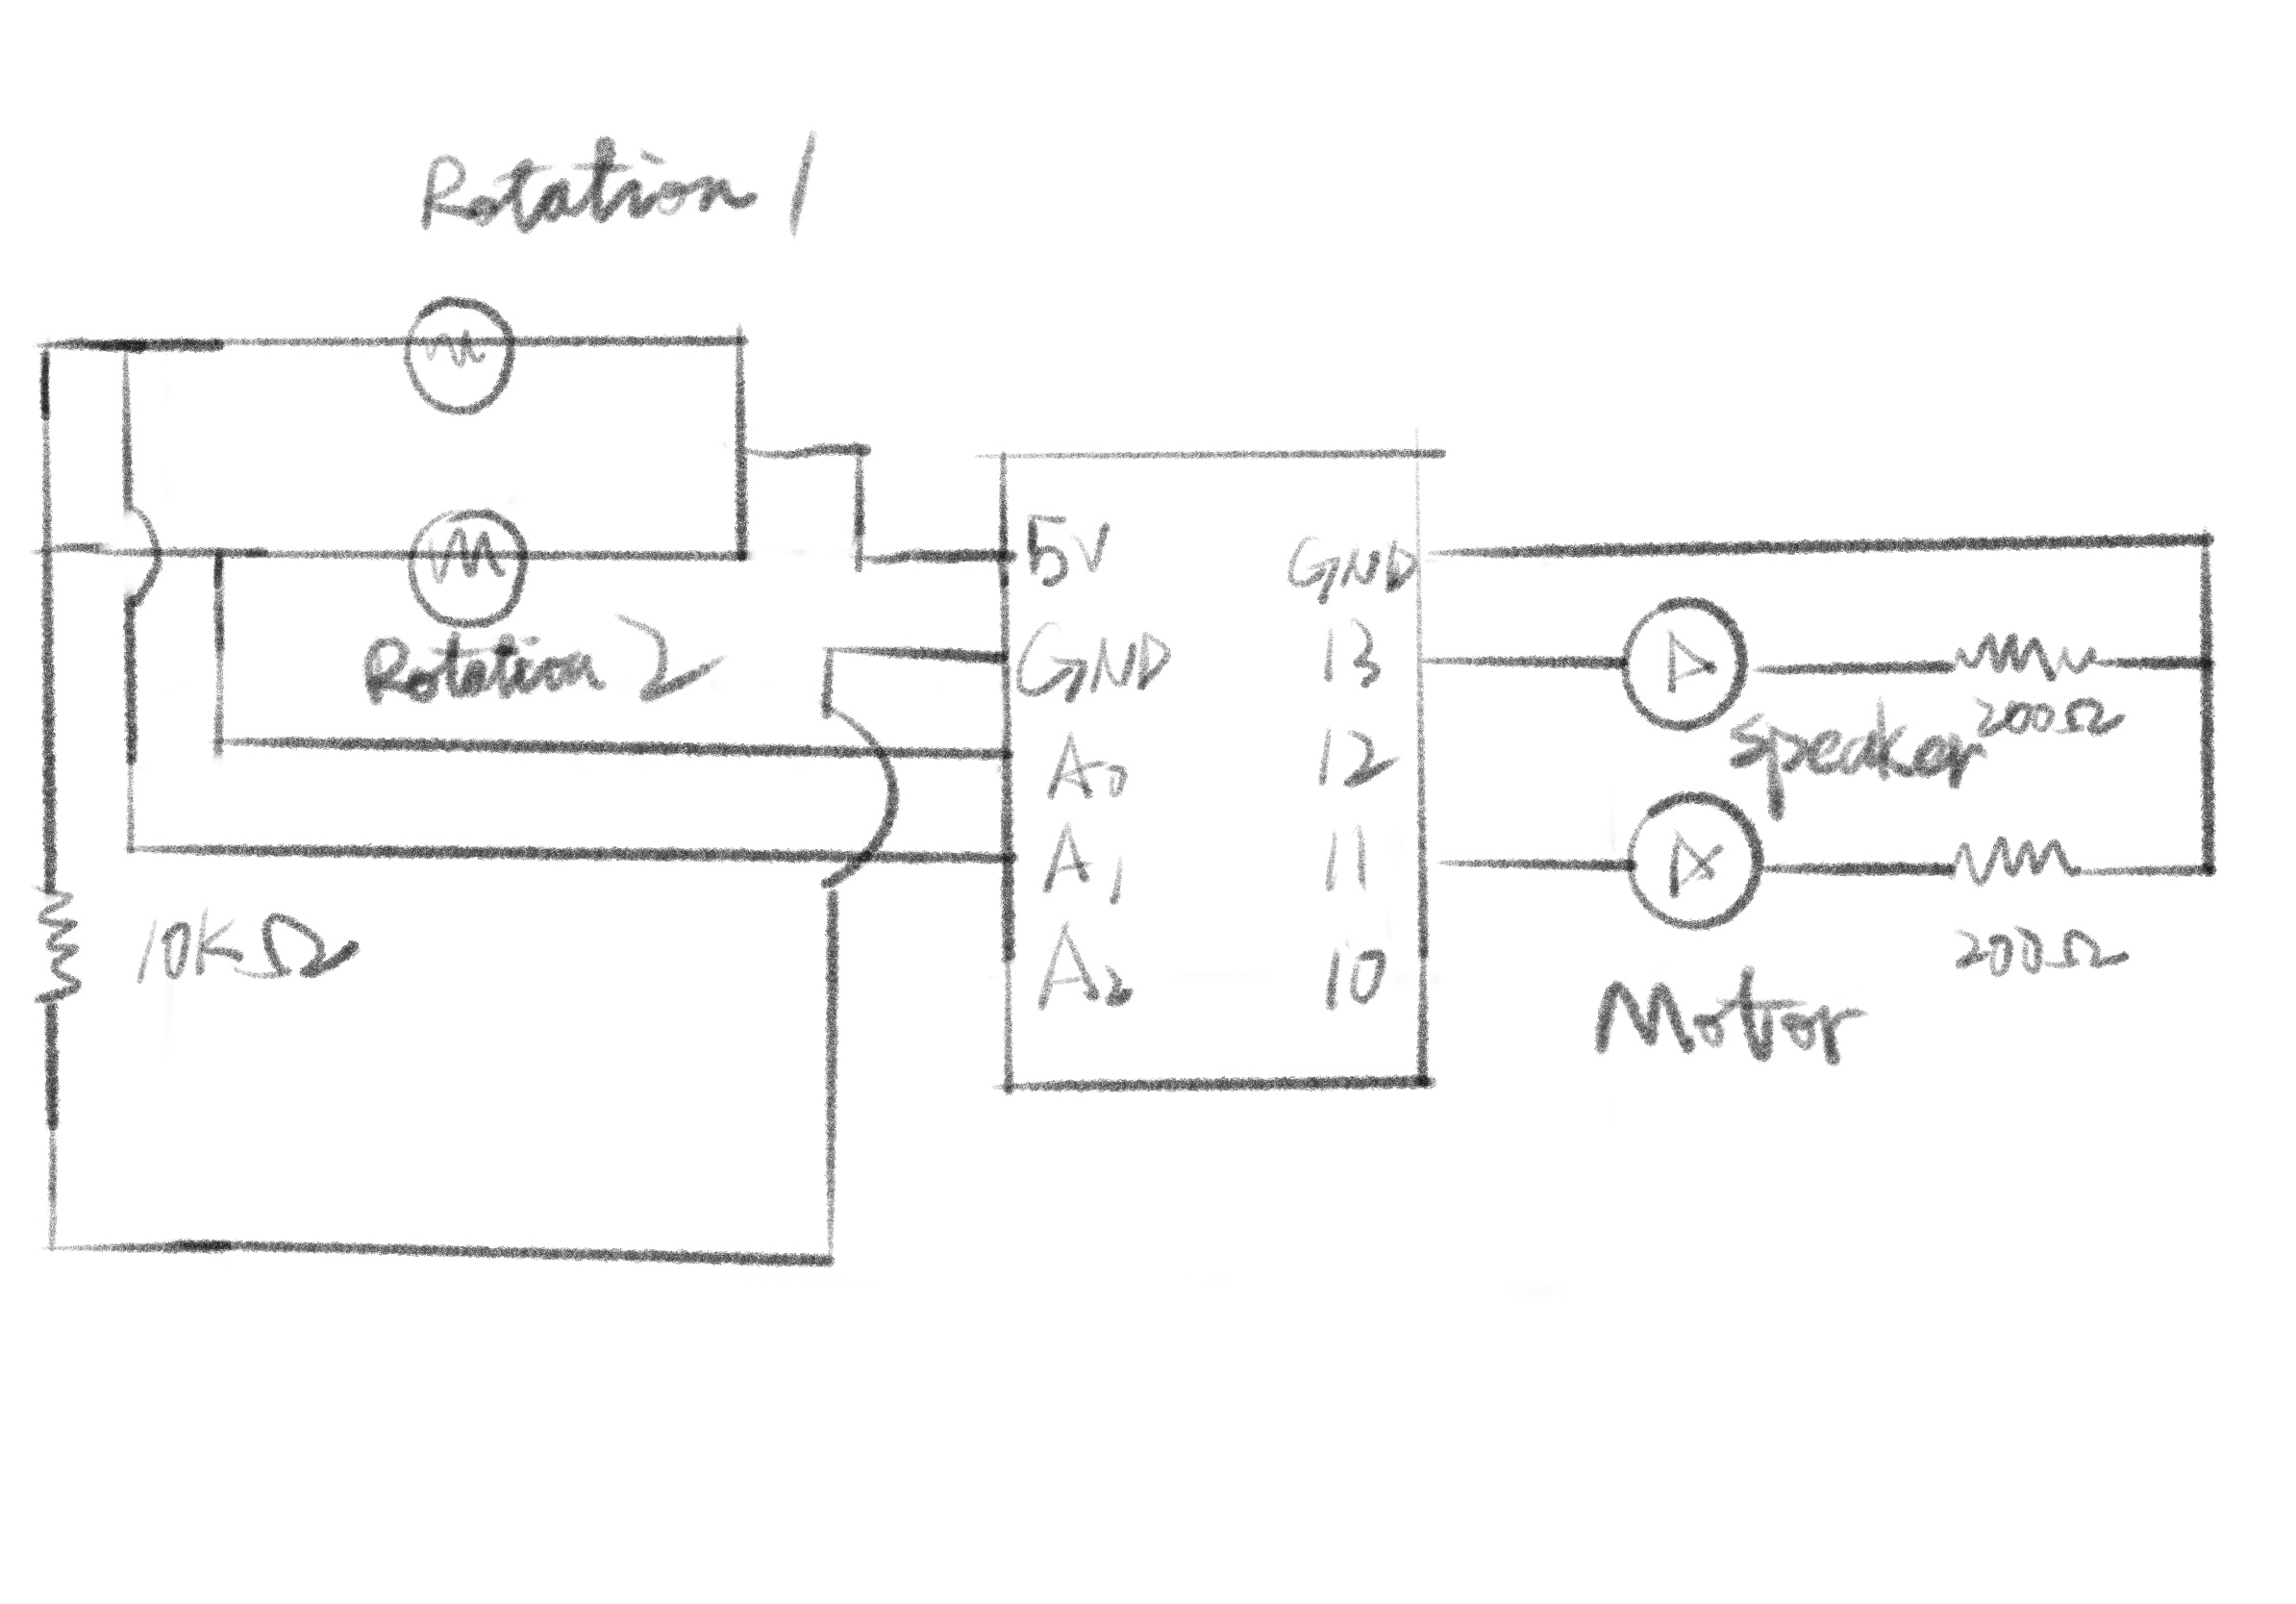 Rotation 1
Rotation 2
10KΩ
5V
GND
A0
A1
A2
GND
13
12
11
10
Speaker
200Ω
Motor
200Ω